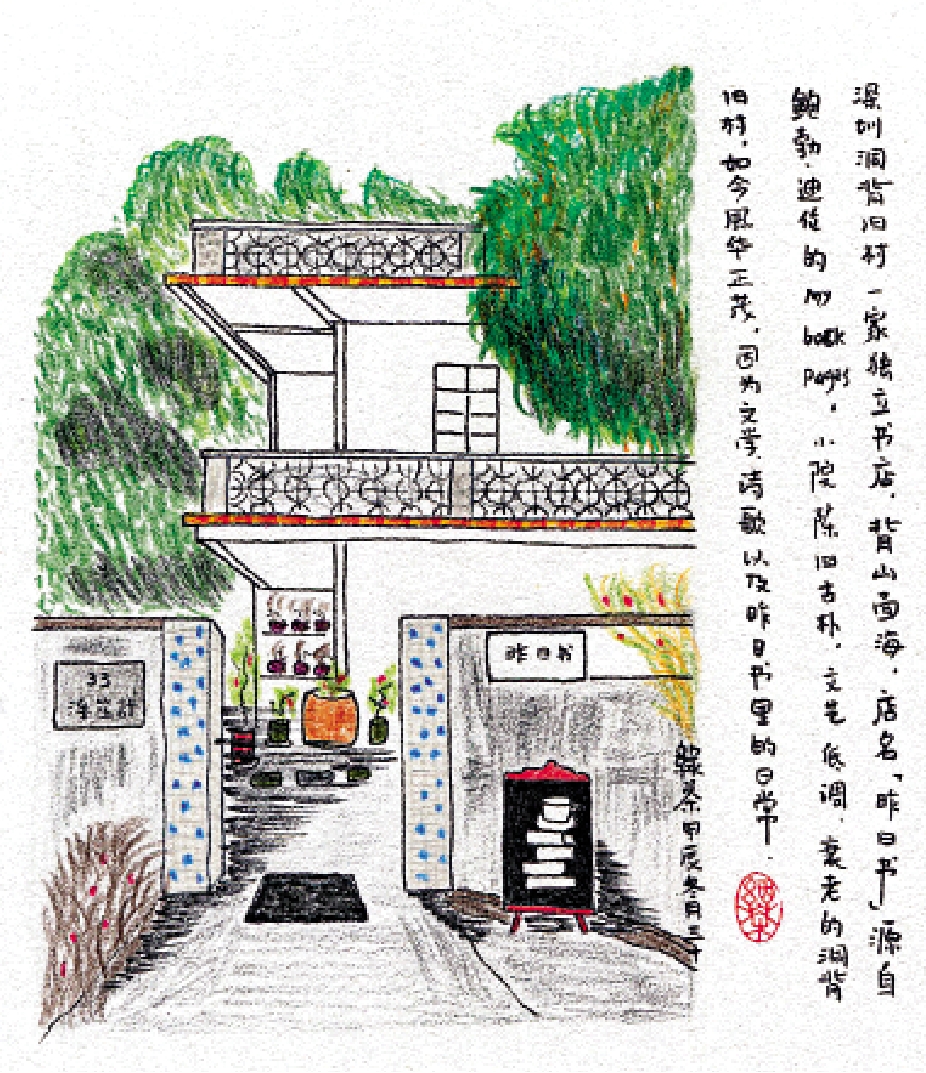 深圳洞背旧村一家独立书店，背山面海，店名「昨日书」源自
鲍勃·迪伦的 my back pages，小院陈旧古朴，文艺低调，衰老的洞背
旧村，如今風华正茂，因为文学，诗歌以及昨日书里的日常。
桑甲辰冬月三十
昨日书
33